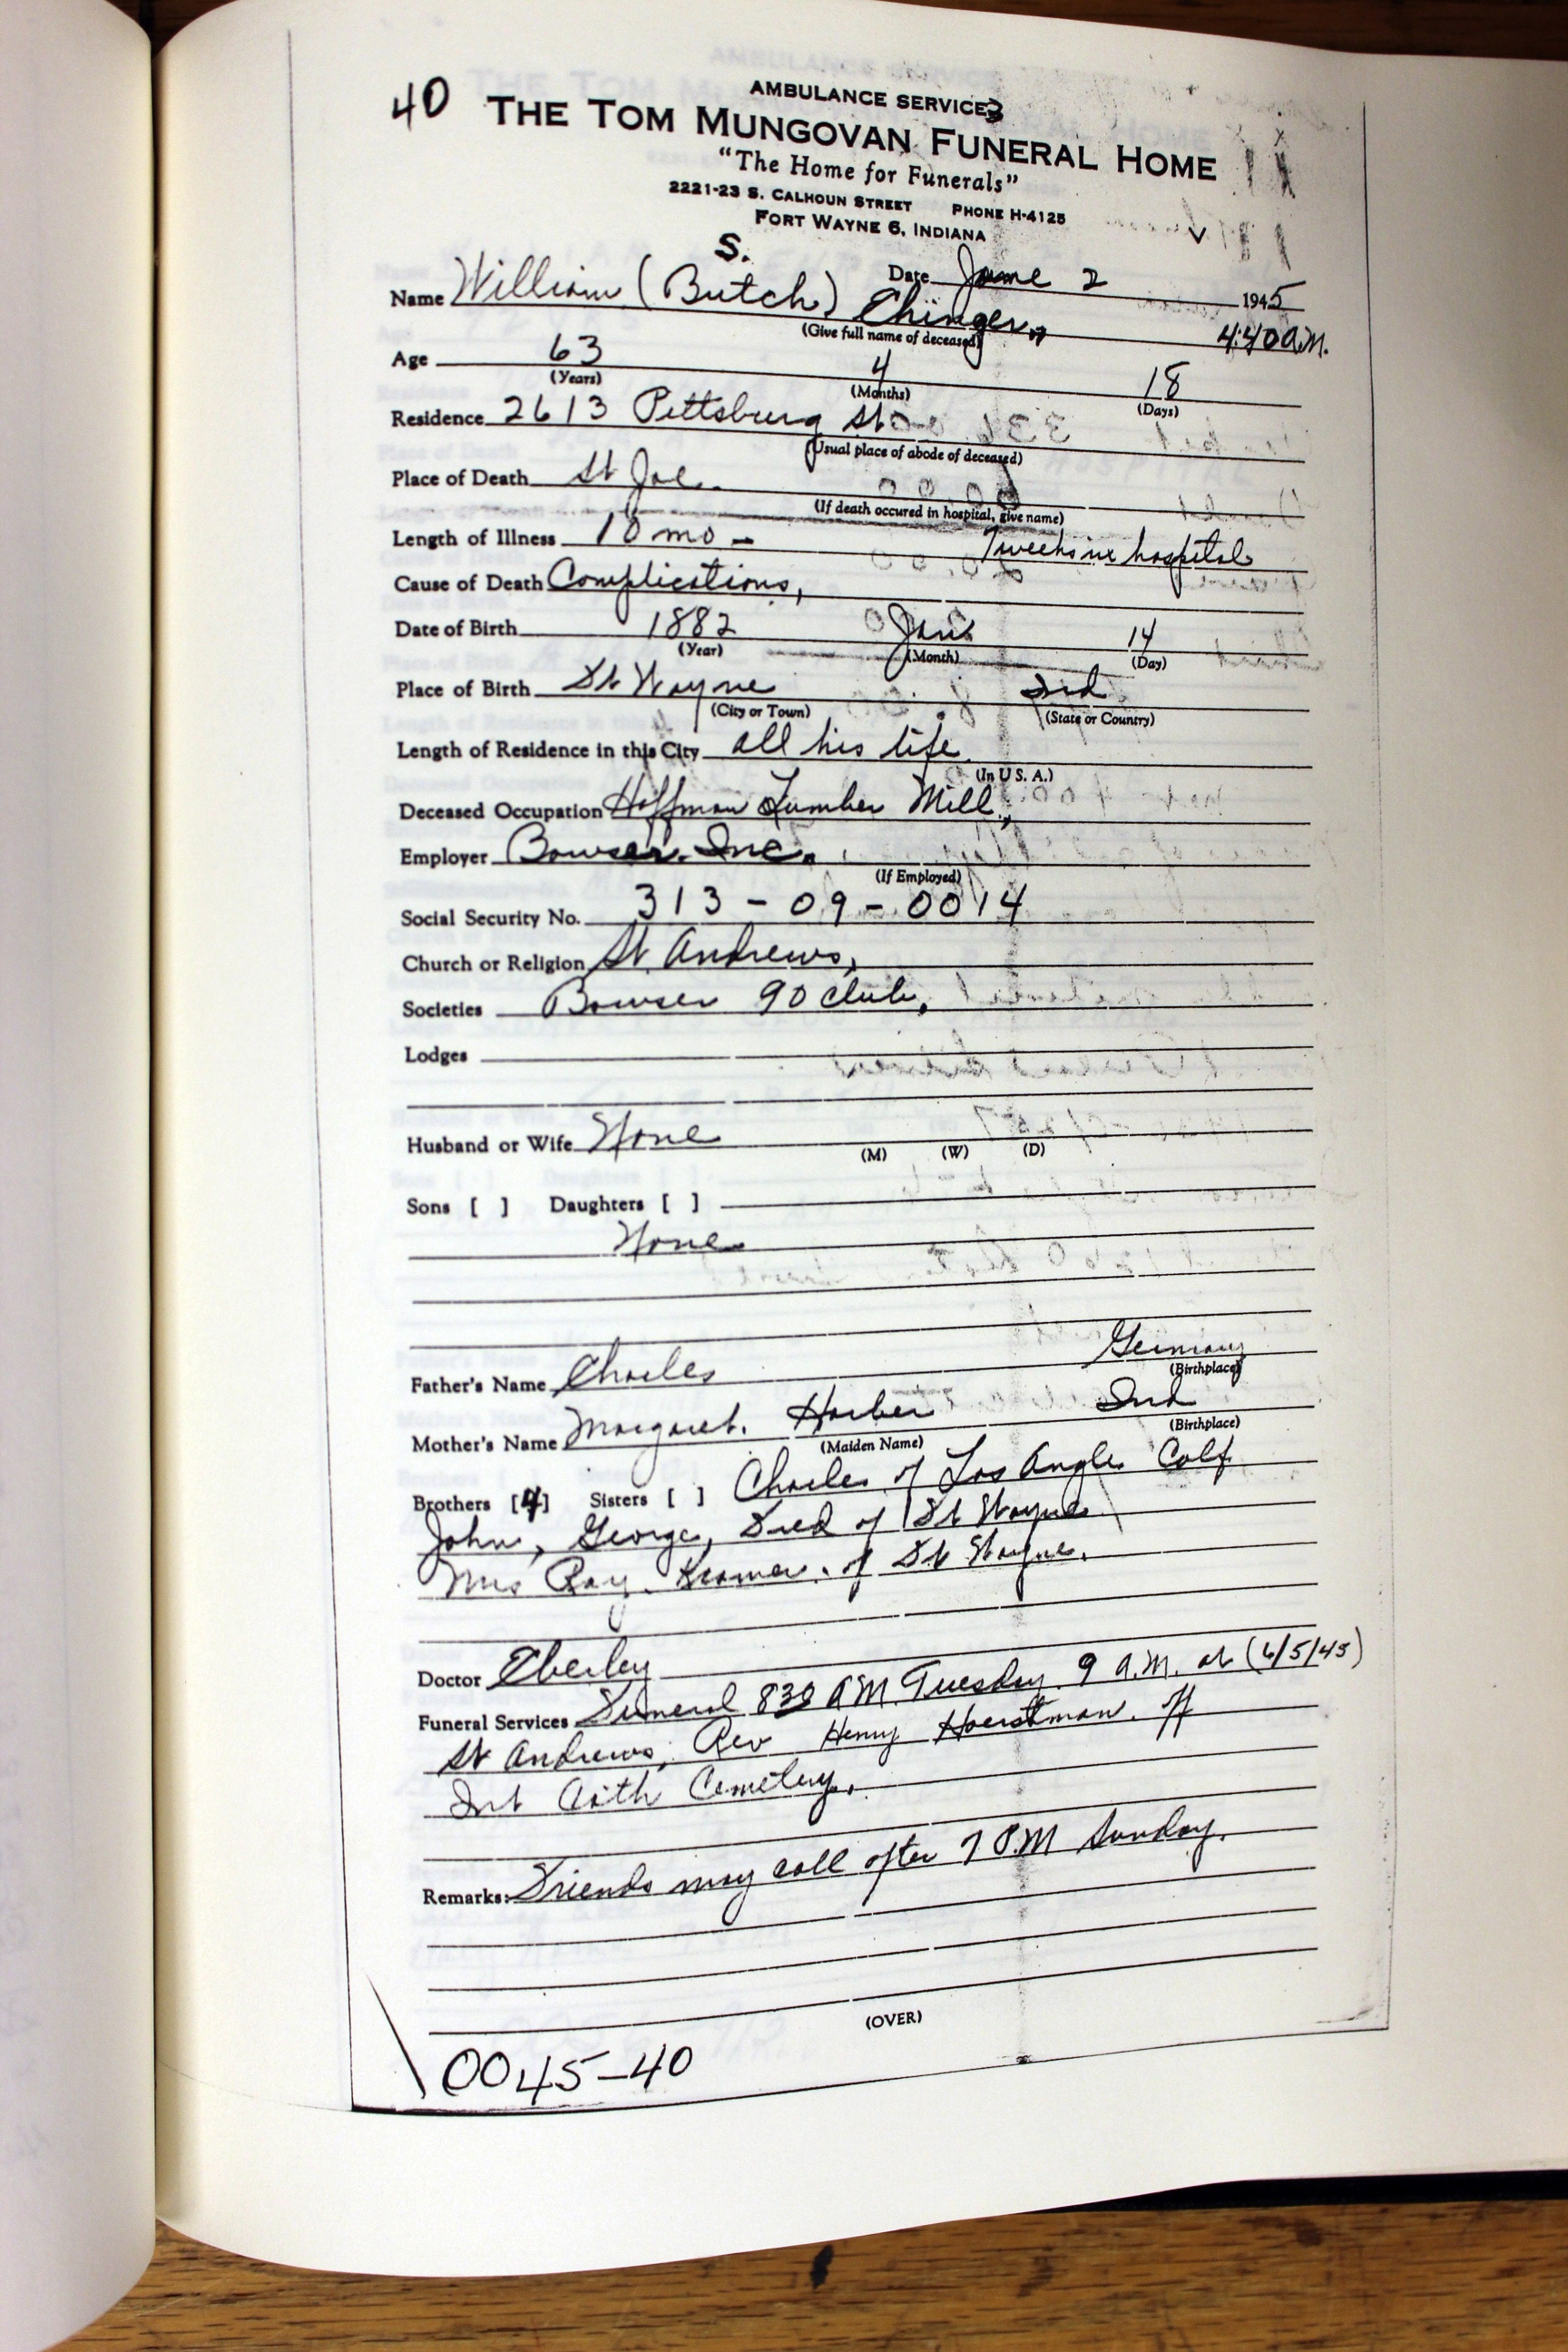 AMBULANCE SERVICE
40 THE TOM MUNGOVAN FUNERAL HOME
"The Home for Funerals"
2221-23 S. CALHOUN STREET PHONE H-4125
FORT WAYNE 6, INDIANA
S.
Name William (Butch) Ehinger, Date June 2 1945
(Give full name of deceased) 4:40 A.M.
Age 63 4 18
(Years) (Months) (Days)
Residence 2613 Pittsburg St
(Usual place of abode of deceased)
Place of Death St Joe.
(If death occured in hospital, give name)
Length of Illness 10 mo - 7 weeks in hospital
Cause of Death Complications,
Date of Birth 1882 Jan 14
(Year) (Month) (Day)
Place of Birth Ft Wayne Ind
(City or Town) (State or Country)
Length of Residence in this City all his life
(In U S. A.)
Deceased Occupation Hoffman Lumber Mill,
Employer Bowser. Inc.
(If Employed)
Social Security No. 313-09-0014
Church or Religion St Andrews,
Societies Bowser 90 Club,
Lodges
Husband or Wife None
(M) (W) (D)
Sons [ ] Daughters [ ]
None
Father's Name Charles Germany
(Birthplace)
Mother's Name Margaret. Harber Ind
(Maiden Name) (Birthplace)
Brothers [4] Sisters [ ] Charles of Los Angles Calf
John, George, Fred of Ft Wayne
Mrs Ray. Kramer. of Ft Wayne.
Doctor Eberley
Funeral Services Funeral 830 AM. Tuesday. 9 A.M. at (6/5/45)
St Andrews, Rev Henry Hoerstman. off
Int Cath Cemetery,
Remarks: Friends may call after 7 P.M Sunday.
(OVER)
0045-40